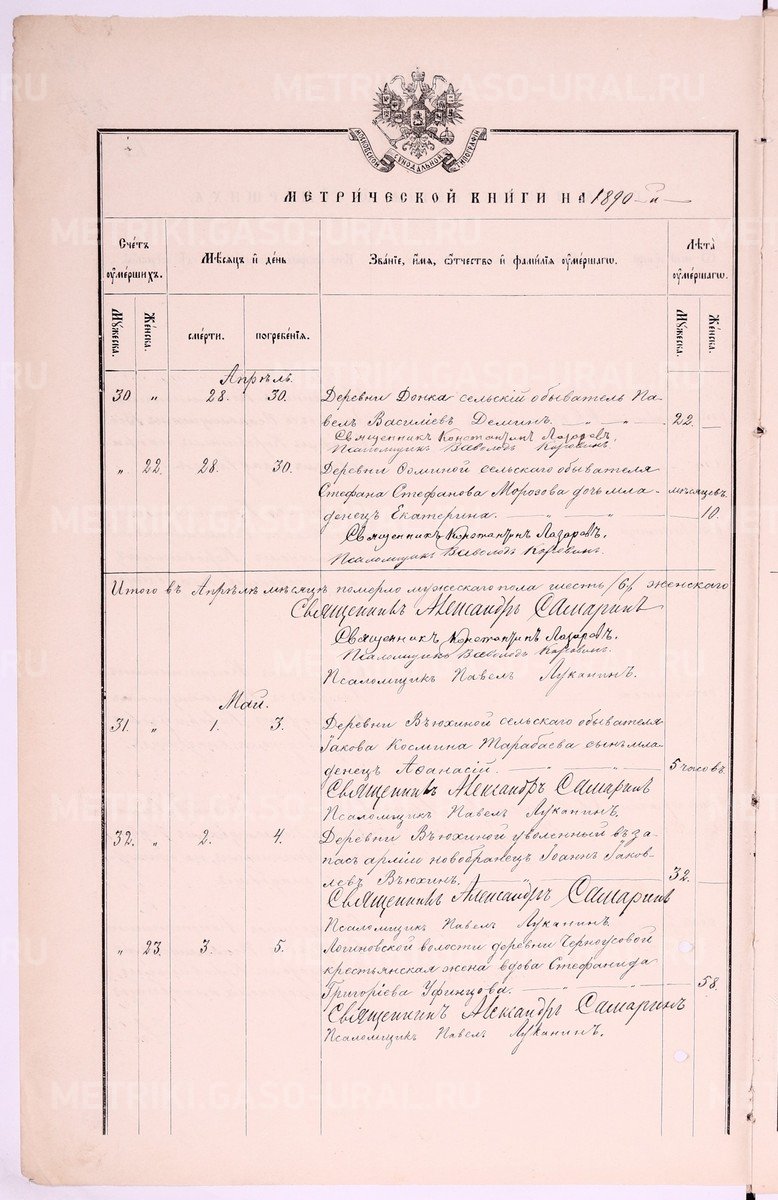 МОСКОВСКОЙ СѴНОДАЛЬНОЙ ТИПОГРАФІИ
МЕТРИ́ЧЕСКОЙ КНИ́ГИ НА 1890-й
Сче́тъ оу҆ме́ршихъ.
Мѣ́сяцъ и҆ де́нь
Зва́нїе, и҆́мя, ѻ҆́тчество и҆ фами́лїя оу҆ме́ршагѡ.
Лѣ́та оу҆ме́ршагѡ.
Мꙋ́жеска.
Же́нска.
сме́рти.
погребе́нїя.
Мꙋ́жеска.
Же́нска.
Апрѣль.
30 " 28. 30. Деревни Донка сельскій обыватель Па-
велъ Василіевъ Деминъ. — " — " — 22. —
Священникъ Константинъ Лазаревъ.
Псаломщикъ Всеволодъ Коровинъ.
" 22. 28. 30. Деревни Ѳоминой сельскаго обывателя
Стефана Стефанова Морозова дочь мла- мѣсяцевъ.
денецъ Екатерина. — " — " — 10.
Священникъ Константинъ Лазаревъ.
Псаломщикъ Всеволодъ Коровинъ.
Итого въ Апрѣлѣ мѣсяцѣ померло мужескаго пола шесть /6/, женскаго
Священникъ Александръ Самаринъ
Священникъ Константинъ Лазаревъ.
Псаломщикъ Всеволодъ Коровинъ.
Псаломщикъ Павелъ Луканинъ.
Май.
31. " 1. 3. Деревни Вьюхиной сельскаго обывателя
Іакова Космина Тарабаева сынъ мла-
денецъ Аѳанасій. — " — " — 5 часовъ
Священникъ Александръ Самаринъ
Псаломщикъ Павелъ Луканинъ.
32. " 2. 4. Деревни Вьюхиной уволенный въ за-
пасъ арміи новобранецъ Іоаннъ Іаков-
левъ Вьюхинъ. — " — 32. —
Священникъ Александръ Самаринъ
Псаломщикъ Павелъ Луканинъ.
" 23. 3. 5. Логиновской волости деревни Черноусовой
крестьянская жена вдова Стефанида
Григоріева Уфинцова. — " — " — 58.
Священникъ Александръ Самаринъ
Псаломщикъ Павелъ Луканинъ.
METRIKI.GASO-URAL.RU